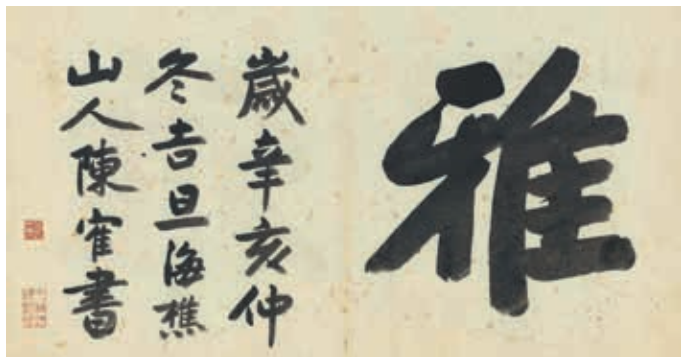 雅
歲辛亥仲
冬吉旦海樵
山人陳寉書